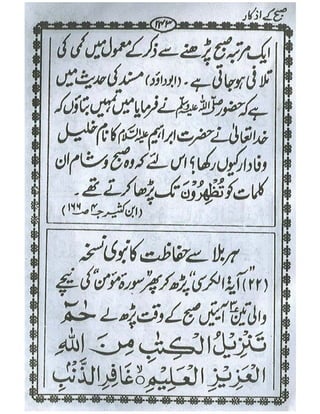 صبح کے اذکار
۱۴۳
ایک مرتبہ صبح پڑھنے سے ذکر کے معمول میں کمی کی
تلافی ہو جاتی ہے۔ (ابوداؤد) مسند کی حدیث میں
ہے کہ حضور صلی اللہ علیہ وسلم نے فرمایا میں تمہیں بتاؤں کہ
خدا تعالیٰ نے حضرت ابراہیم علیہ السلام کا نام خلیل
وفادار کیوں رکھا؟ اس لئے کہ وہ صبح و شام ان
کلمات کو تُظْهِرُوْنَ تک پڑھا کرتے تھے۔
(ابن کثیر جـ۴ صـ ۱۶۶)
ہر بلا سے حفاظت کا نبوی نسخہ
(۲۲) ”آیۃ الکرسی“ پڑھ کر پھر ”سورۂ مؤمن“ کی نیچے
والی تین آیتیں صبح کے وقت پڑھ لے حٰمٓ
تَنْزِيْلُ الْكِتٰبِ مِنَ اللّٰهِ
الْعَزِيْزِ الْعَلِيْمِ ۝ غَافِرِ الذَّنْۢبِ